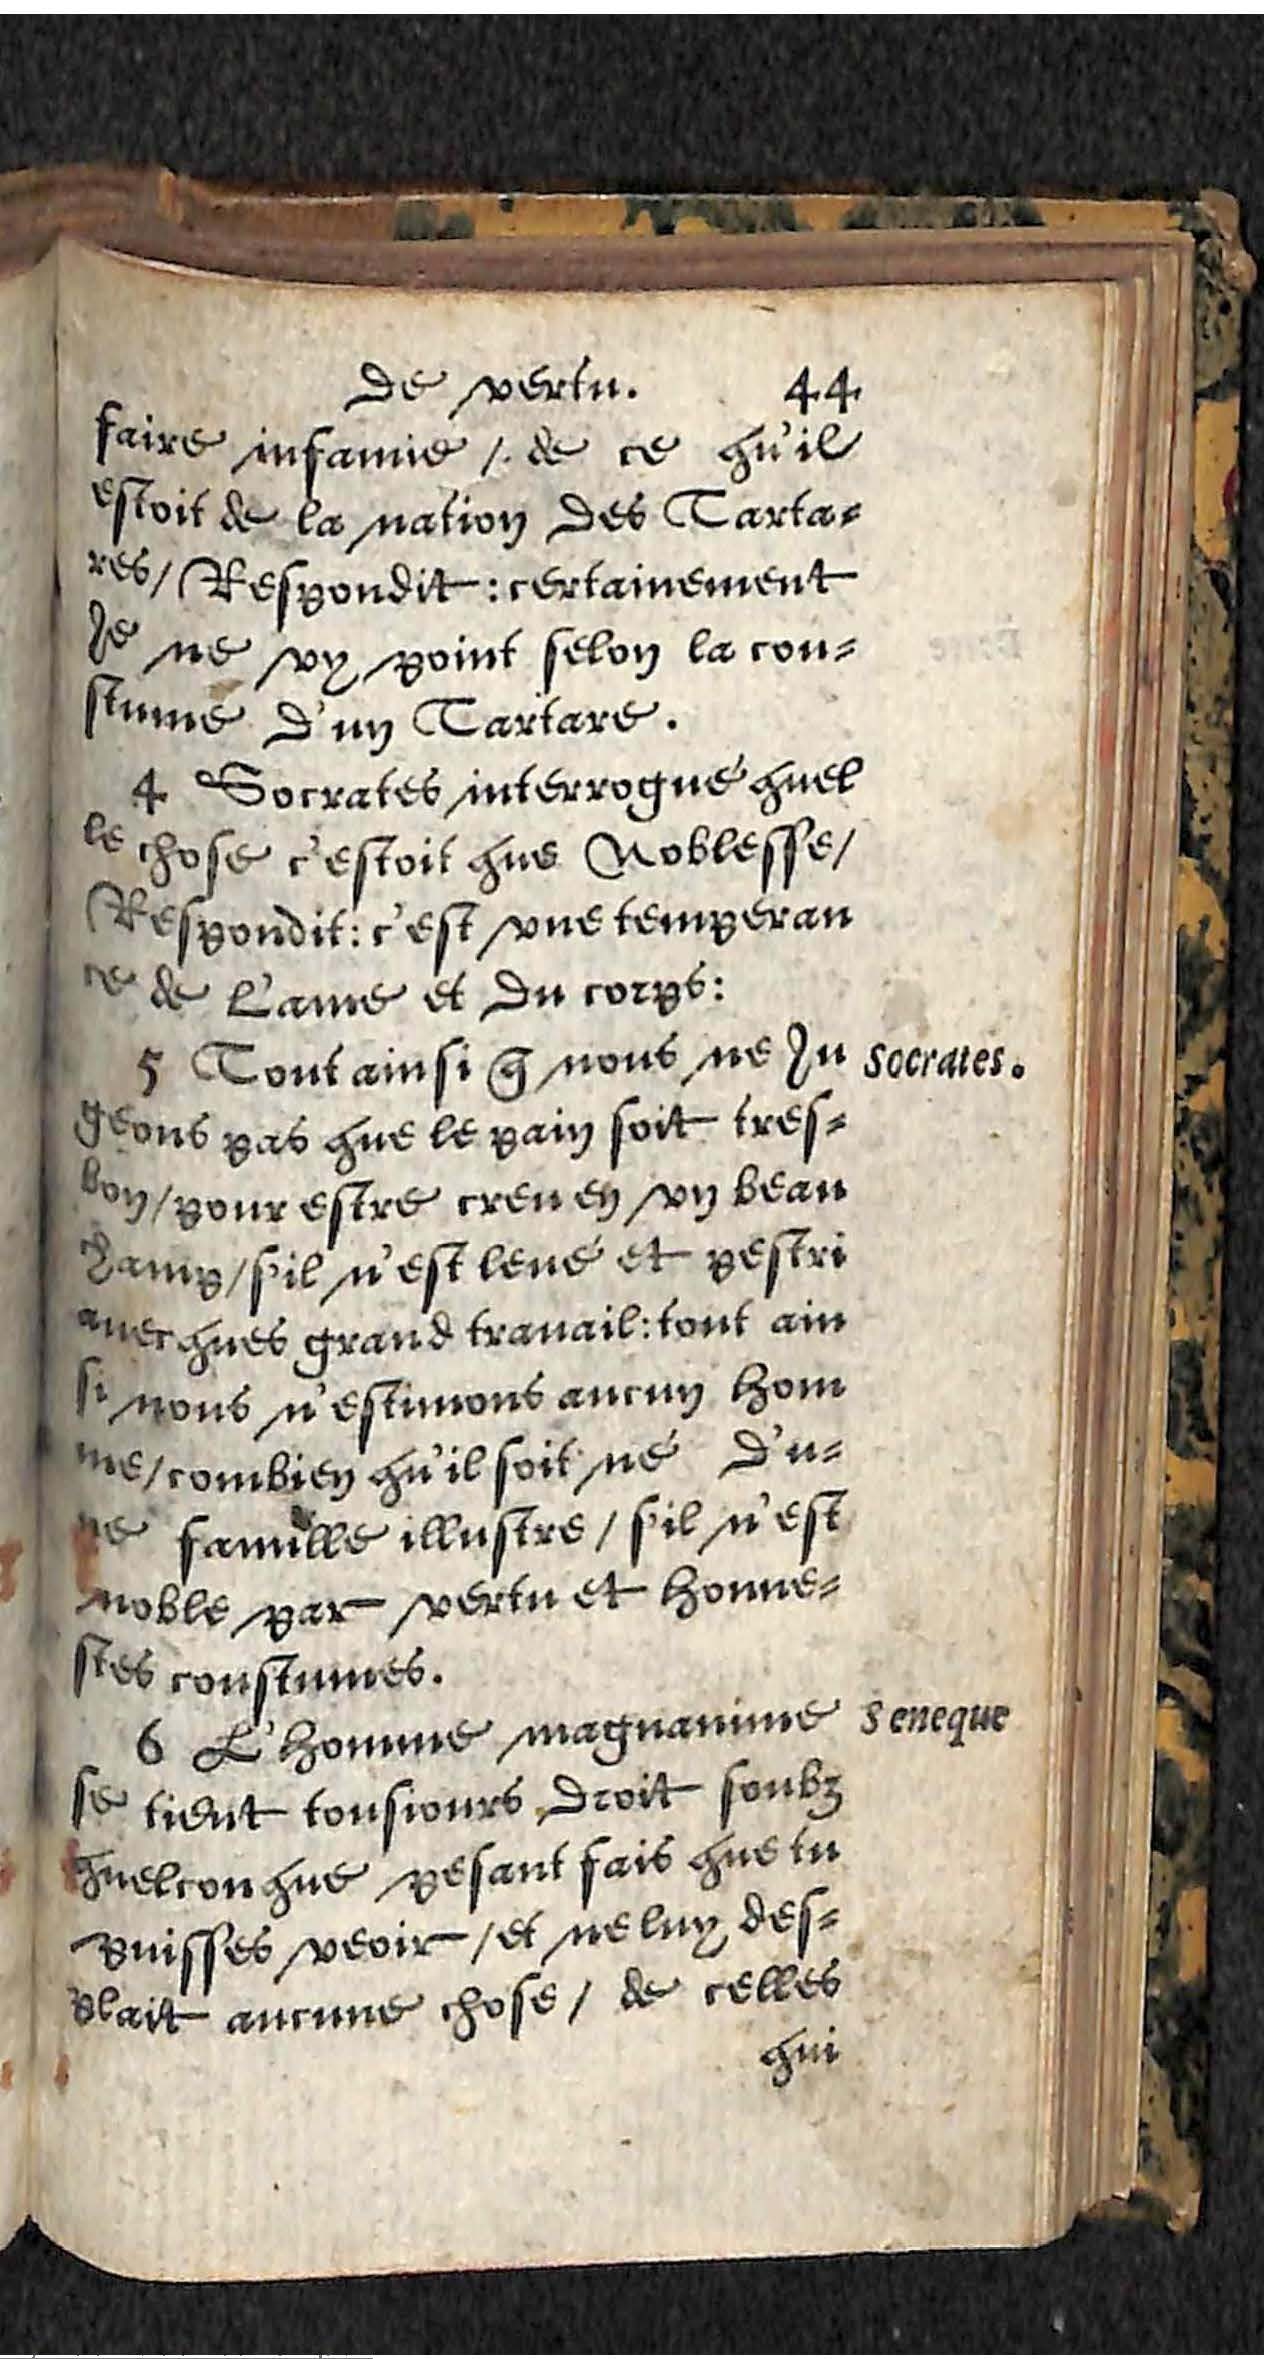 De vertu. 44
faire infamie /. de ce qu'il
estoit de la nation des Tarta=
res/ Respondit : certainement
Je ne vy point selon la cou=
stume d'un Tartare.
4 Socrates interrogué quel
le chose c'estoit que Noblesse/
Respondit: c'est vne temperan
ce de L'ame et du corps:
5 Tout ainsi q̃ nous ne Ju
Socrates.
geons pas que le pain soit tres=
bon/ pour estre creu en vn beau
champ/ s'il n'est leué et pestri
auecques grand trauail: tout ain
si nous n'estimons aucun hom
me/ combien qu'il soit né d'u=
ne famille illustre/ s'il n'est
noble par vertu et honne=
stes coustumes.
6 L'homme magnanime
Seneque
se tient tousiours droit soubz
quelconque pesant fais que tu
puisses veoir/ et ne luy des=
plait aucune chose/ de celles
qui